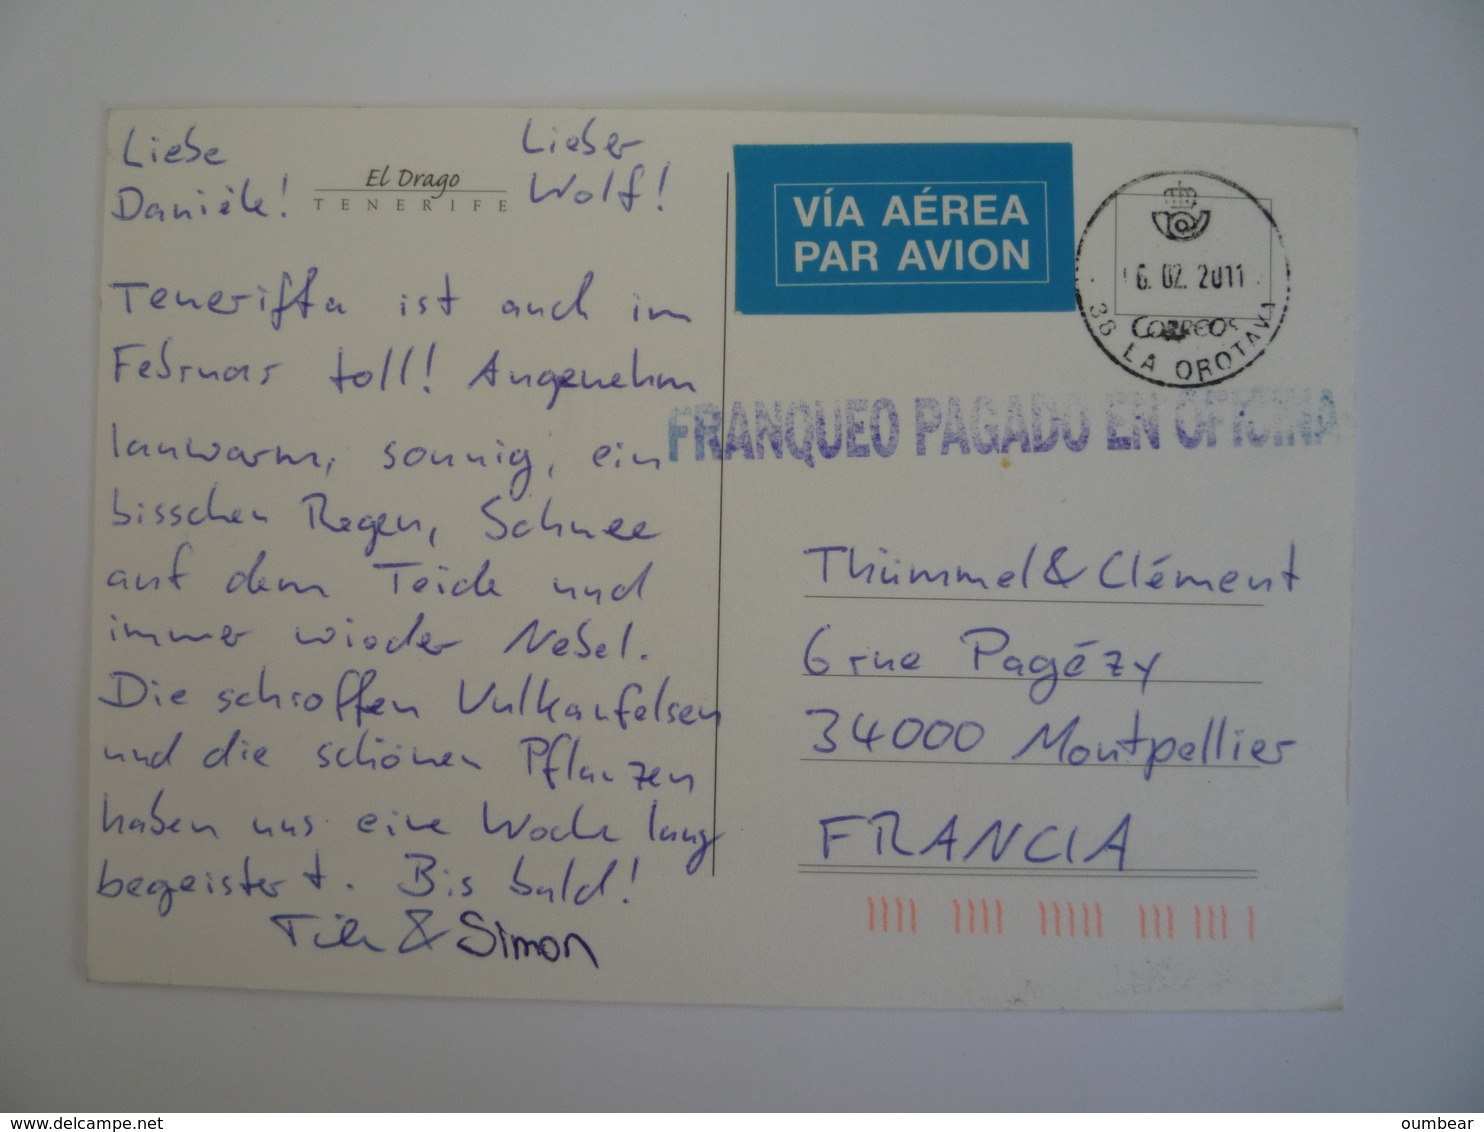 Liebe
Danièle!
Lieber
Wolf!
El Drago
TENERIFE
Teneriffa ist auch im
Februar toll! Angenehm
lauwarm, sonnig, ein
bisschen Regen, Schnee
auf dem Teide und
immer wieder Nebel.
Die schroffen Vulkanfelsen
und die schönen Pflanzen
haben uns eine Woche lang
begeistert. Bis bald!
& Simon
VÍA AÉREA
PAR AVION
6. 02. 2011
CORREOS
38 LA OROTAVA
FRANQUEO PAGADO EN OFICINA
Thümmel & Clément
6 rue Pagézy
34000 Montpellier
FRANCIA
delcampe.net
oumbear